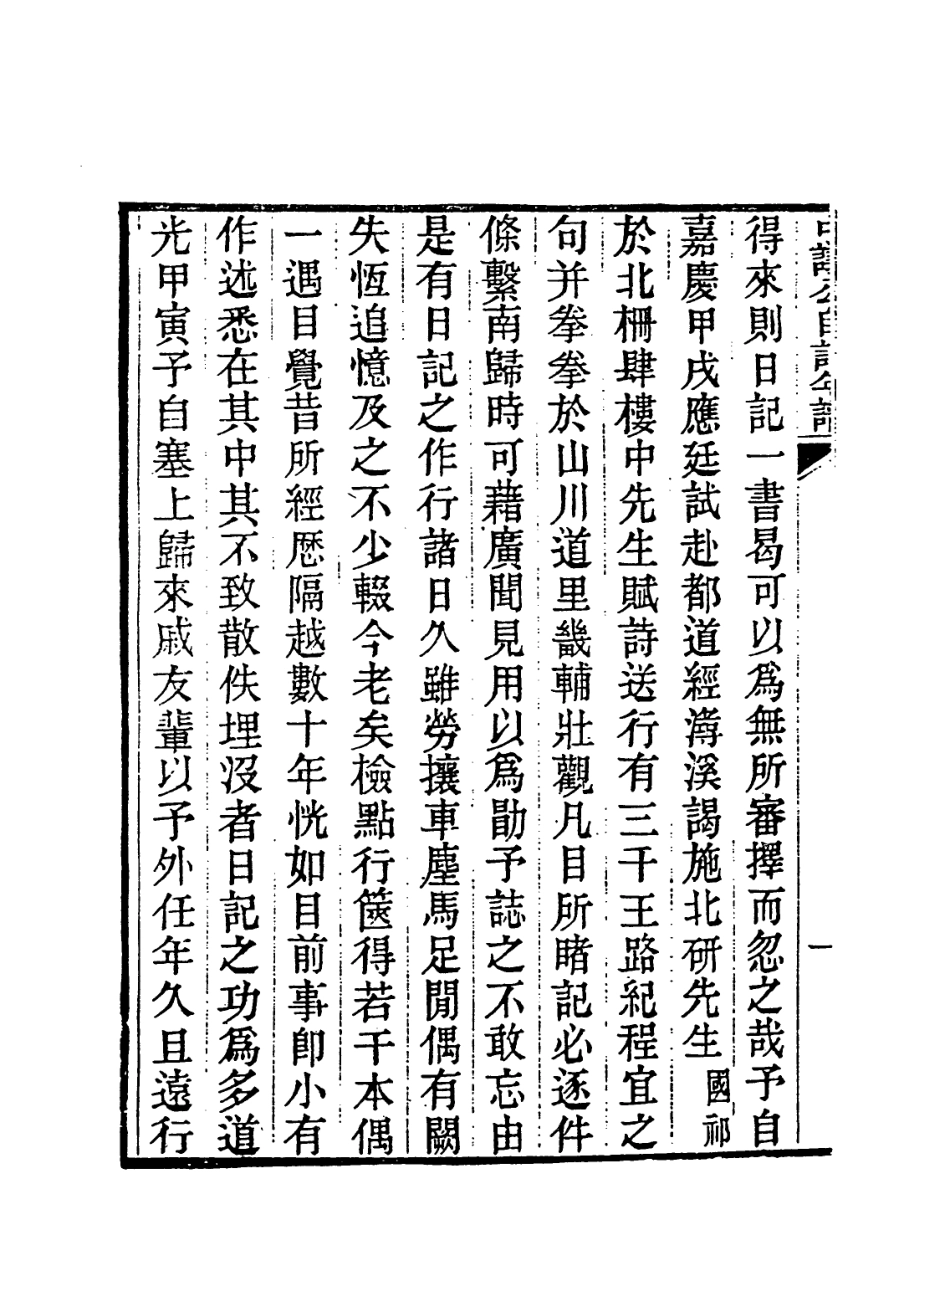 公自訂年譜
一
得來則日記一書曷可以爲無所審擇而忽之哉予自
嘉慶甲戌應廷試赴都道經潯溪謁施北研先生國祁
於北柵肆樓中先生賦詩送行有三千王路紀程宜之
句并拳拳於山川道里畿輔壯觀凡目所睹記必逐件
條繫南歸時可藉廣聞見用以爲勖予誌之不敢忘由
是有日記之作行諸日久雖勞攘車塵馬足閒偶有闕
失恆追憶及之不少輟今老矣檢點行篋得若干本偶
一遇目覺昔所經厯隔越數十年恍如目前事卽小有
作述悉在其中其不致散佚埋沒者日記之功爲多道
光甲寅予自塞上歸來戚友輩以予外任年久且遠行